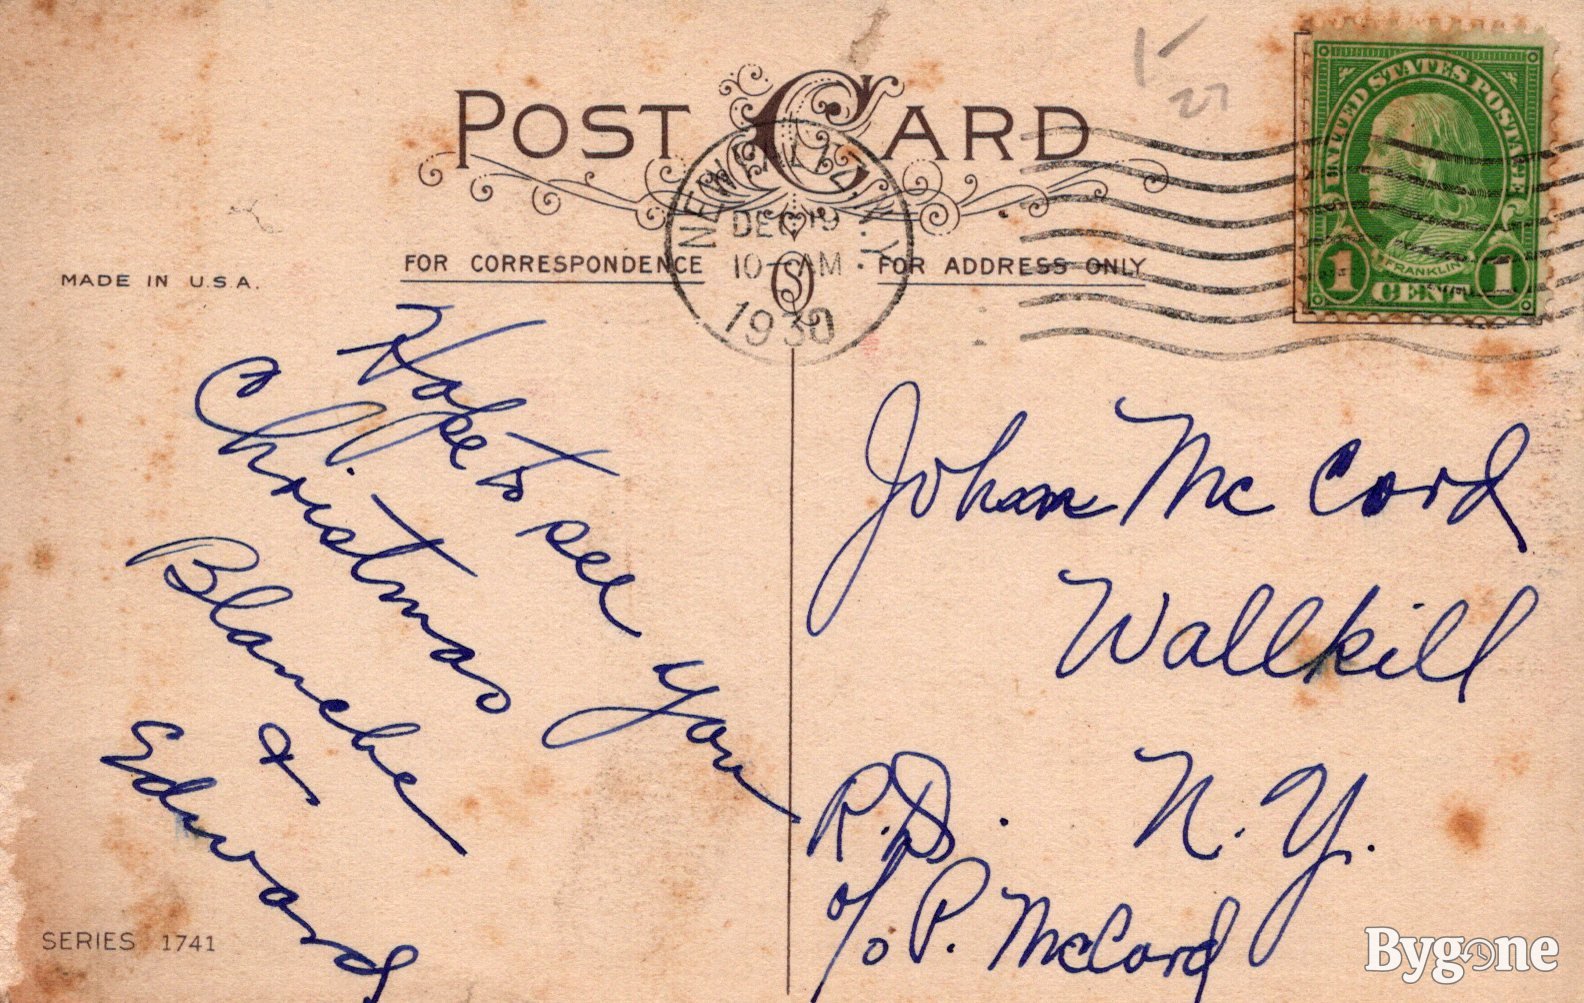 1-
27
POST CARD
NEW PALTZ, N.Y.
DEC 19
10-AM
1930
UNITED STATES POSTAGE
FRANKLIN
1 CENT 1
FOR CORRESPONDENCE
FOR ADDRESS ONLY
MADE IN U.S.A.
Hope to see you
Christmas
Blanche
&
Edward
SERIES 1741
John McCord
Wallkill
R.D. N.Y.
c/o P. McCord
Bygone